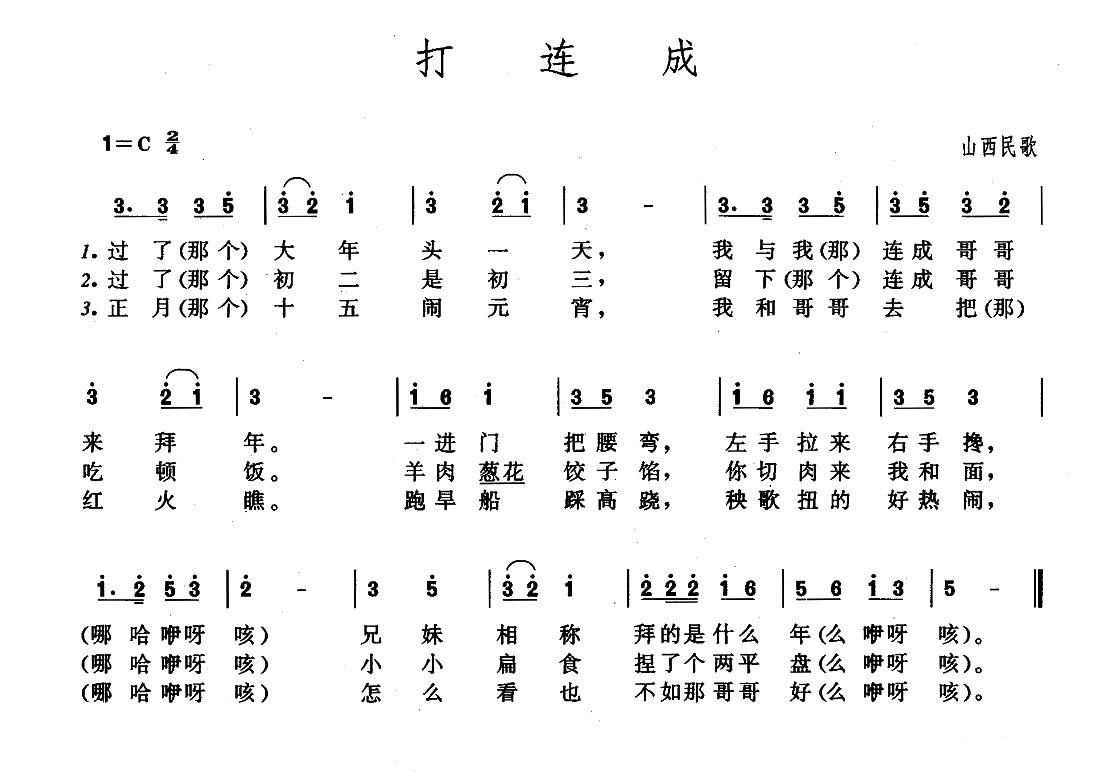 打连成
1=C 2/4 山西民歌
3. 3 3 5 | 3 2 1 | 3 2 1 | 3 - | 3. 3 3 5 | 3 5 3 2 |
1.过了(那个)大年头一天，我与我(那)连成哥哥
2.过了(那个)初二是初三，留下(那个)连成哥哥
3.正月(那个)十五闹元宵，我和哥哥去把(那)
3 2 1 | 3 - | 1 6 1 | 3 5 3 | 1 6 1 1 | 3 5 3 |
来拜年。一进门把腰弯，左手拉来右手搀，
吃顿饭。羊肉葱花饺子馅，你切肉来我和面，
红火瞧。跑旱船踩高跷，秧歌扭的好热闹，
1. 2 5 3 | 2 - | 3 5 | 3 2 1 | 2 2 2 1 6 | 5 6 1 3 | 5 - ‖
(哪哈咿呀咳)兄妹相称拜的是什么年(么咿呀咳)。
(哪哈咿呀咳)小小扁食捏了个两平盘(么咿呀咳)。
(哪哈咿呀咳)怎么看也不如那哥哥好(么咿呀咳)。